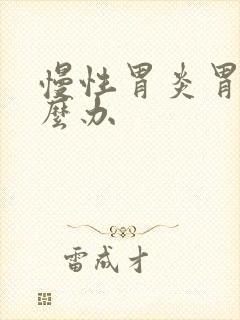 慢性胃炎胃
麼办
雷成才